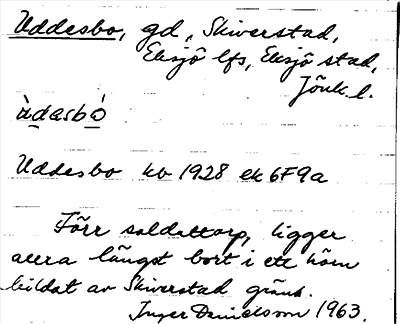 Uddesbo, gd, Skiverstad,
Eksjö lfs, Eksjö stad,
Jönk. l.
ùdasbó
Uddesbo kv 1928 ek 6F9a
Förr soldattorp, ligger
allra längst bort i ett hörn
bildat av Skiverstad gräns.
Inger Danielsson 1963.